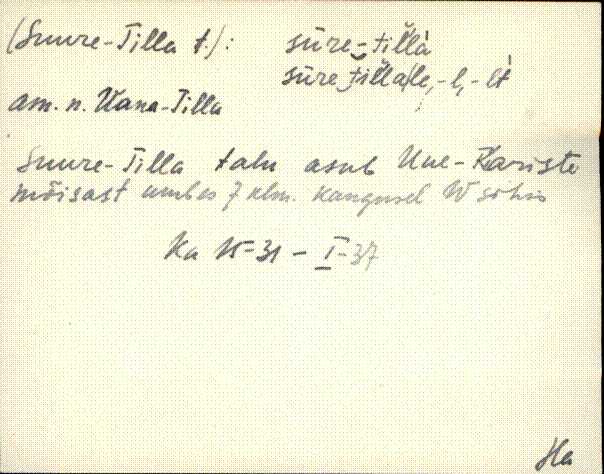 (Suure-Tilla t.): sūre-tilla
sūre tilla|le, -l, -lt
am. n. Vana-Tilla
Suure-Tilla talu asub Uue-Kariste
mõisast umbes 7 klm. kaugusel W sihis
Ka 15=31 - I-37
Ha